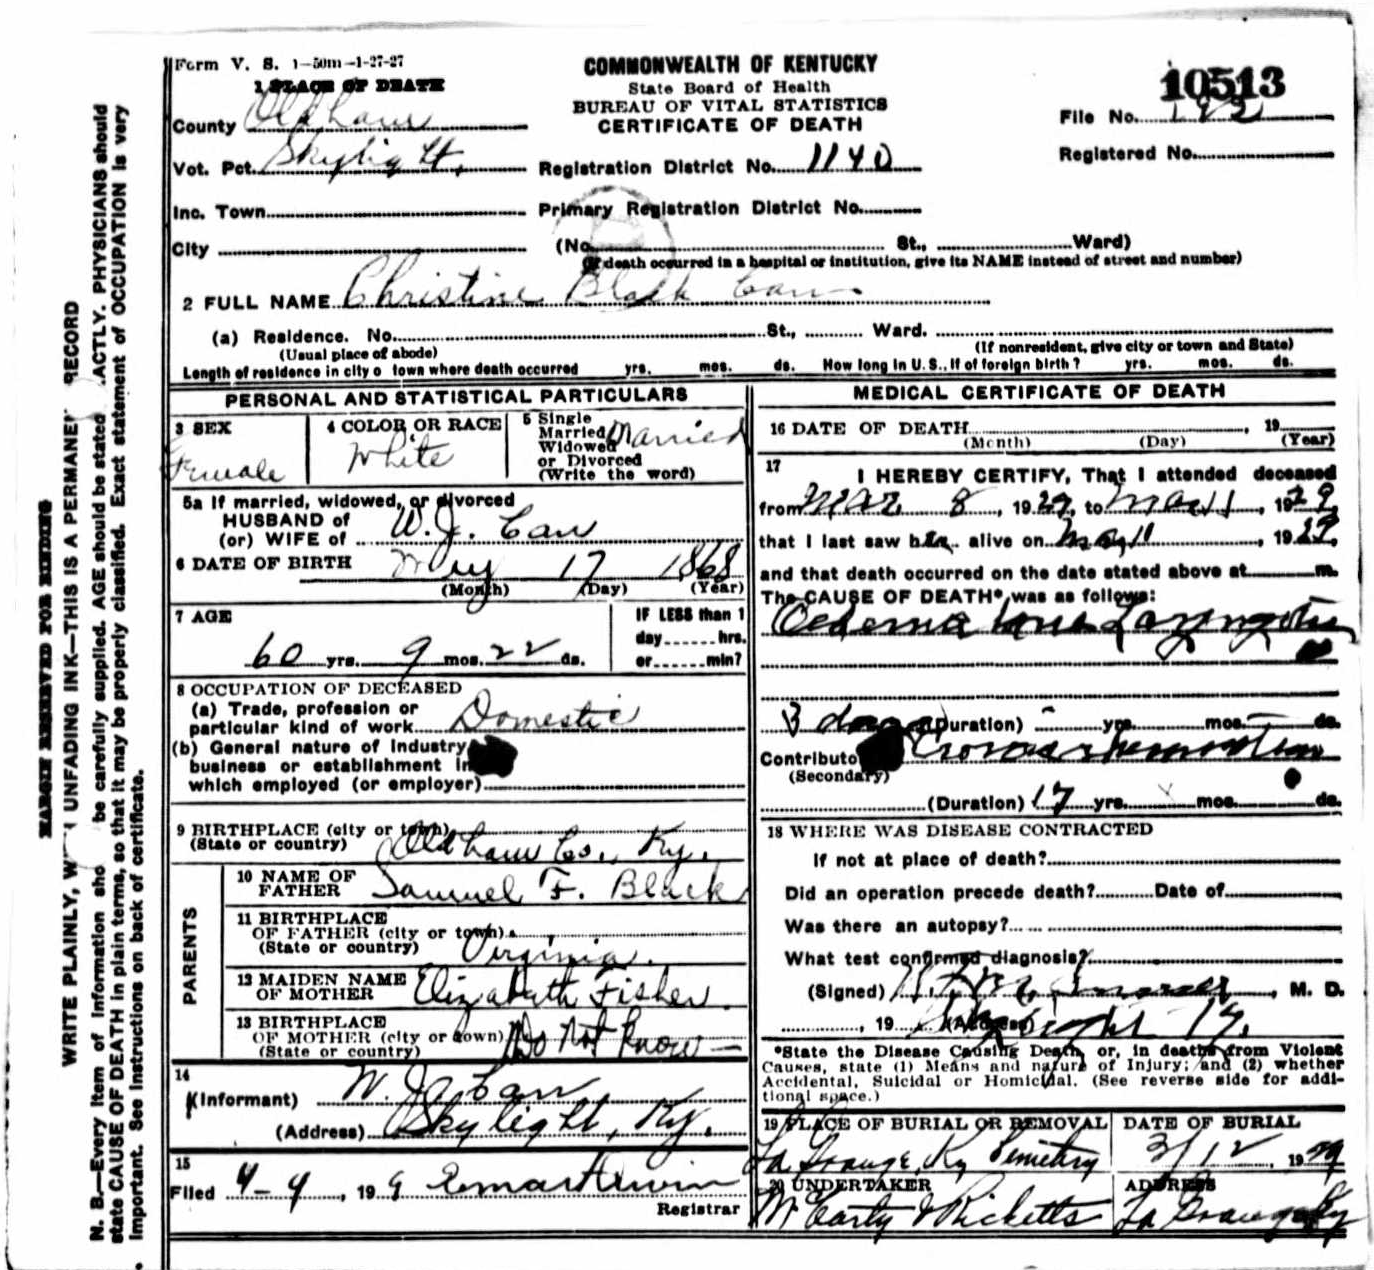 Form V. S. 1-50m-1-27-27
COMMONWEALTH OF KENTUCKY
State Board of Health
BUREAU OF VITAL STATISTICS
CERTIFICATE OF DEATH
10513
1 PLACE OF DEATH
County Oldham
File No.
Vot. Pct. Skylight,
Registration District No. 1140
Registered No.
Inc. Town
Primary Registration District No.
City
(No. St., Ward)
(If death occurred in a hospital or institution, give its NAME instead of street and number)
2 FULL NAME Christine Black
(a) Residence. No. St., Ward.
(Usual place of abode)
(If nonresident, give city or town and State)
Length of residence in city o town where death occurred yrs. mos. ds. How long in U.S., if of foreign birth? yrs. mos. ds.
PERSONAL AND STATISTICAL PARTICULARS
3 SEX
Female
4 COLOR OR RACE
White
5 Single
Married
Widowed
or Divorced
(Write the word)
Married
5a If married, widowed, or divorced
HUSBAND of
(or) WIFE of W. J.
6 DATE OF BIRTH May 17 1868
(Month) (Day) (Year)
7 AGE
60 yrs. 9 mos. 22 ds.
IF LESS than 1
day hrs.
or min?
8 OCCUPATION OF DECEASED
(a) Trade, profession or
particular kind of work Domestic
(b) General nature of Industry
business or establishment in
which employed (or employer)
9 BIRTHPLACE (city or town)
(State or country) Oldham Co., Ky.
PARENTS
10 NAME OF
FATHER Samuel F. Black
11 BIRTHPLACE
OF FATHER (city or town)
(State or country) Virginia.
12 MAIDEN NAME
OF MOTHER Elizabeth Fisher
13 BIRTHPLACE
OF MOTHER (city or town)
(State or country) Do not know
14
(Informant) W. J.
(Address) Skylight, Ky.
15
Filed 4-4, 19 9
Registrar
MEDICAL CERTIFICATE OF DEATH
16 DATE OF DEATH , 19
(Month) (Day) (Year)
17
I HEREBY CERTIFY, That I attended deceased
from Mar 8, 1929, to Mar 11, 1929,
that I last saw her alive on Mar 11, 1929,
and that death occurred on the date stated above at m.
The CAUSE OF DEATH* was as follows:
Oedema
3 days (Duration) yrs. mos. ds.
Contributory
(Secondary)
(Duration) 17 yrs. mos. ds.
18 WHERE WAS DISEASE CONTRACTED
If not at place of death?
Did an operation precede death? Date of
Was there an autopsy?
What test confirmed diagnosis?
(Signed) , M. D.
, 19 (Address) Skylight Ky.
*State the Disease Causing Death, or, in deaths from Violent
Causes, state (1) Means and nature of Injury; and (2) whether
Accidental, Suicidal or Homicidal. (See reverse side for addi-
tional space.)
19 PLACE OF BURIAL OR REMOVAL
La Grange, Ky Cemetery
DATE OF BURIAL
3/12, 1929
20 UNDERTAKER
McCarty & Ricketts
ADDRESS
La Grange Ky
MARGIN RESERVED FOR BINDING
WRITE PLAINLY, W UNFADING INK—THIS IS A PERMANE RECORD
N. B.—Every item of information sho be carefully supplied. AGE should be stated ACTLY. PHYSICIANS should
state CAUSE OF DEATH in plain terms, so that it may be properly classified. Exact statement of OCCUPATION is very
important. See instructions on back of certificate.